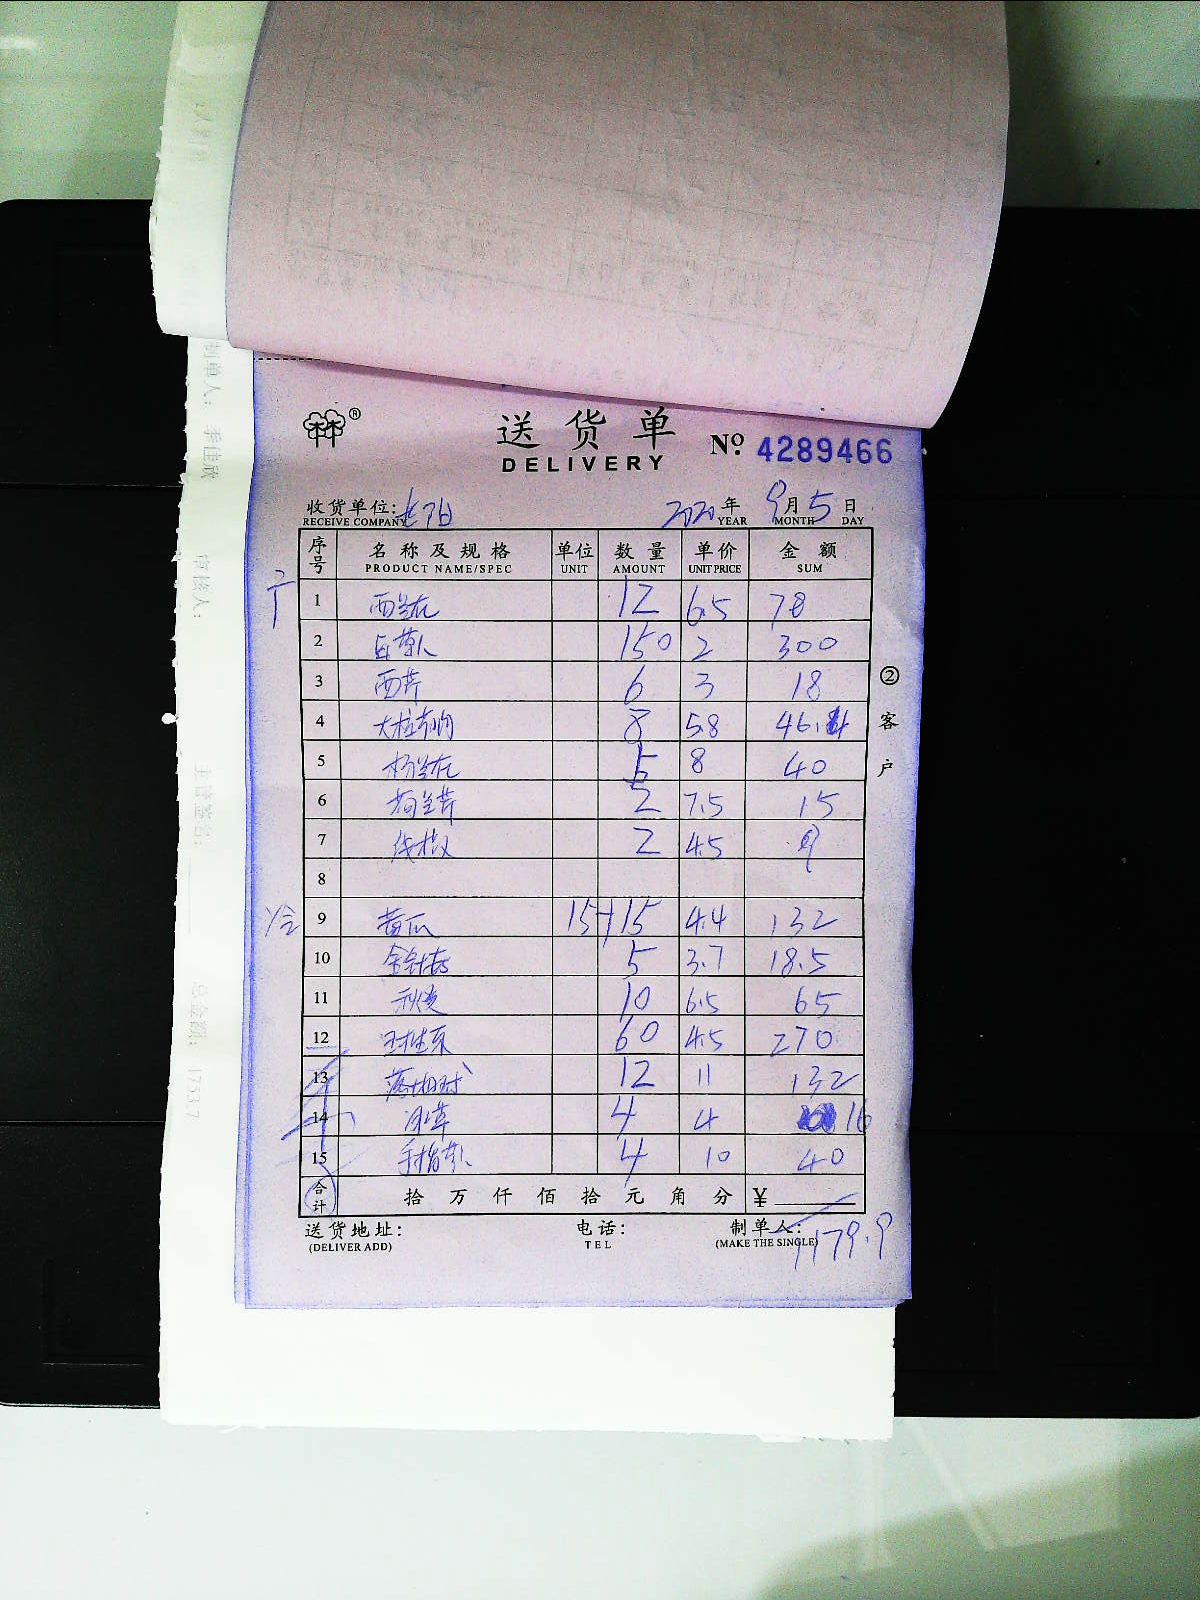 送货单
DELIVERY
Nº 4289466
收货单位:
RECEIVE COMPANY
2020 年 9 月 5 日
YEAR MONTH DAY
序号 名称及规格 单位 数量 单价 金额
PRODUCT NAME/SPEC UNIT AMOUNT UNIT PRICE SUM
1 西兰花 12 6.5 78
2 150 2 300
3 西芹 6 3 18
4 8 5.8 46.4
5 5 8 40
6 荷兰芹 2 7.5 15
7 线椒 2 4.5 9
8
9 黄瓜 15+15 4.4 132
10 金针菇 5 3.7 18.5
11 秋葵 10 6.5 65
12 60 4.5 270
13 12 11 132
14 4 4 16
15 4 10 40
合计 拾 万 仟 佰 拾 元 角 分 ¥
1179.9
送货地址: 电话: 制单人:
(DELIVER ADD) TEL (MAKE THE SINGLE)
②客户
制单人: 李佳欣
审核人:
主管签名:
总金额: 1733.7